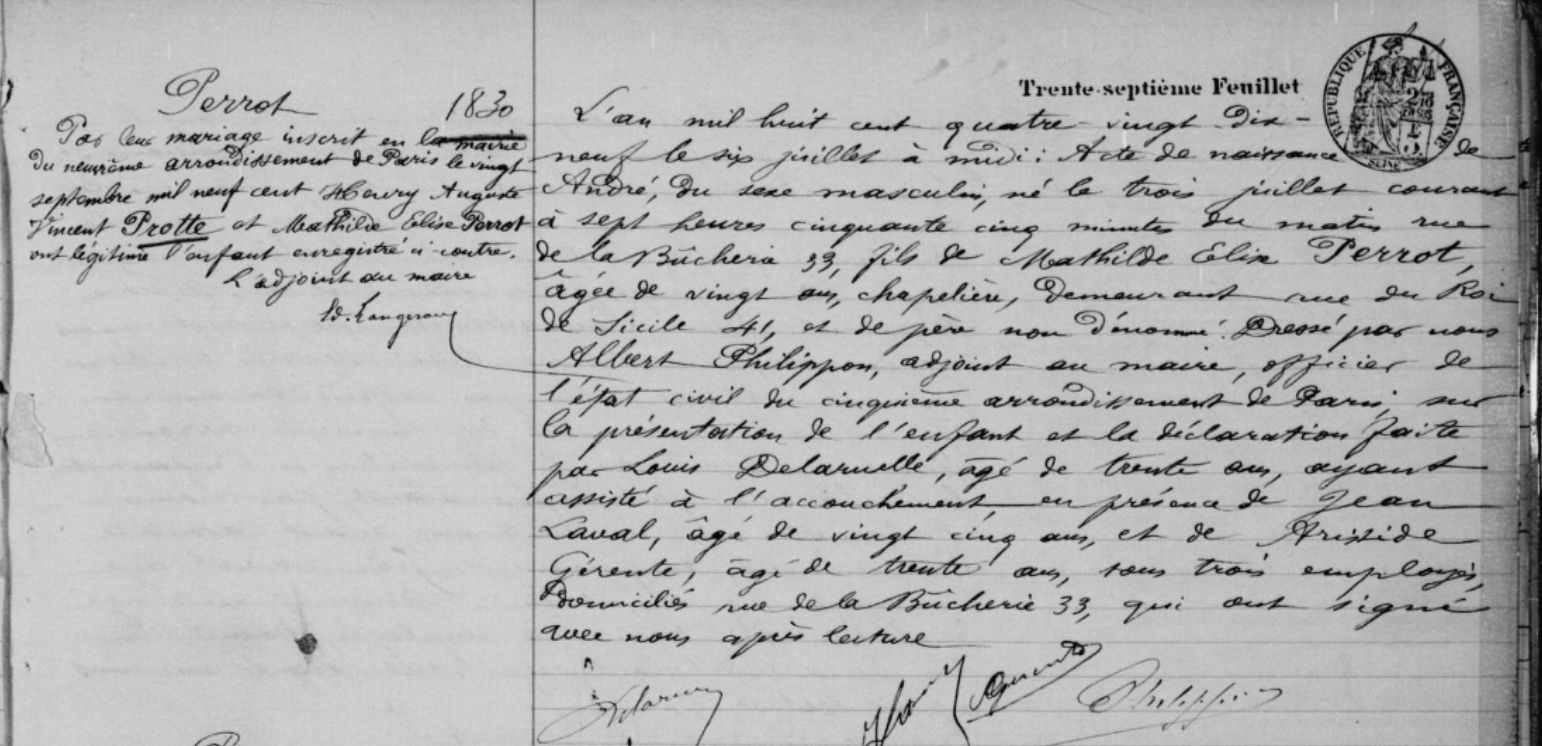 Trente-septième Feuillet
RÉPUBLIQUE FRANÇAISE
SEINE
Perrot
1830
Par leur mariage inscrit en la mairie
du neuvième arrondissement de Paris le vingt
septembre mil neuf cent Henry Auguste
Vincent Protte et Mathilde Elise Perrot
ont légitimé l'enfant enregistré ci-contre.
L'adjoint au maire
L'an mil huit cent quatre-vingt-dix-
neuf le six juillet à midi : Acte de naissance de
André, du sexe masculin, né le trois juillet courant
à sept heures cinquante cinq minutes du matin rue
de la Bûcherie 33, fils de Mathilde Elise Perrot,
âgée de vingt ans, chapelière, demeurant rue du Roi
de Sicile 41, et de père non dénommé. Dressé par nous
Albert Philippon, adjoint au maire, officier de
l'état civil du cinquième arrondissement de Paris, sur
la présentation de l'enfant et la déclaration faite
par Louis Delaruelle, âgé de trente ans, ayant
assisté à l'accouchement en présence de Jean
Laval, âgé de vingt cinq ans, et de Aristide
Gérente, âgé de trente ans, tous trois employés,
domiciliés rue de la Bûcherie 33, qui ont signé
avec nous après lecture
Gérente
Philippon